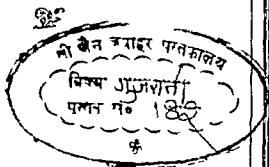 श्री जैन जवाहर पुस्तकालय
विषय गुजराती
पुस्तक नं० 188